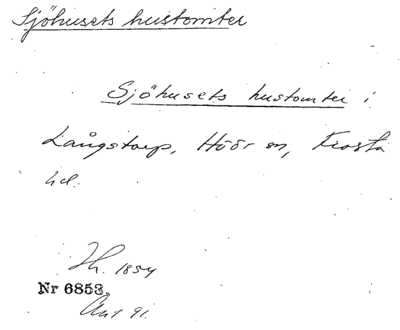 Sjöhusets hustomter
Sjöhusets hustomter i
Långstorp, Höör sn, Frosta
hd.
Th. 1854
Nr 6853
Ant 91.